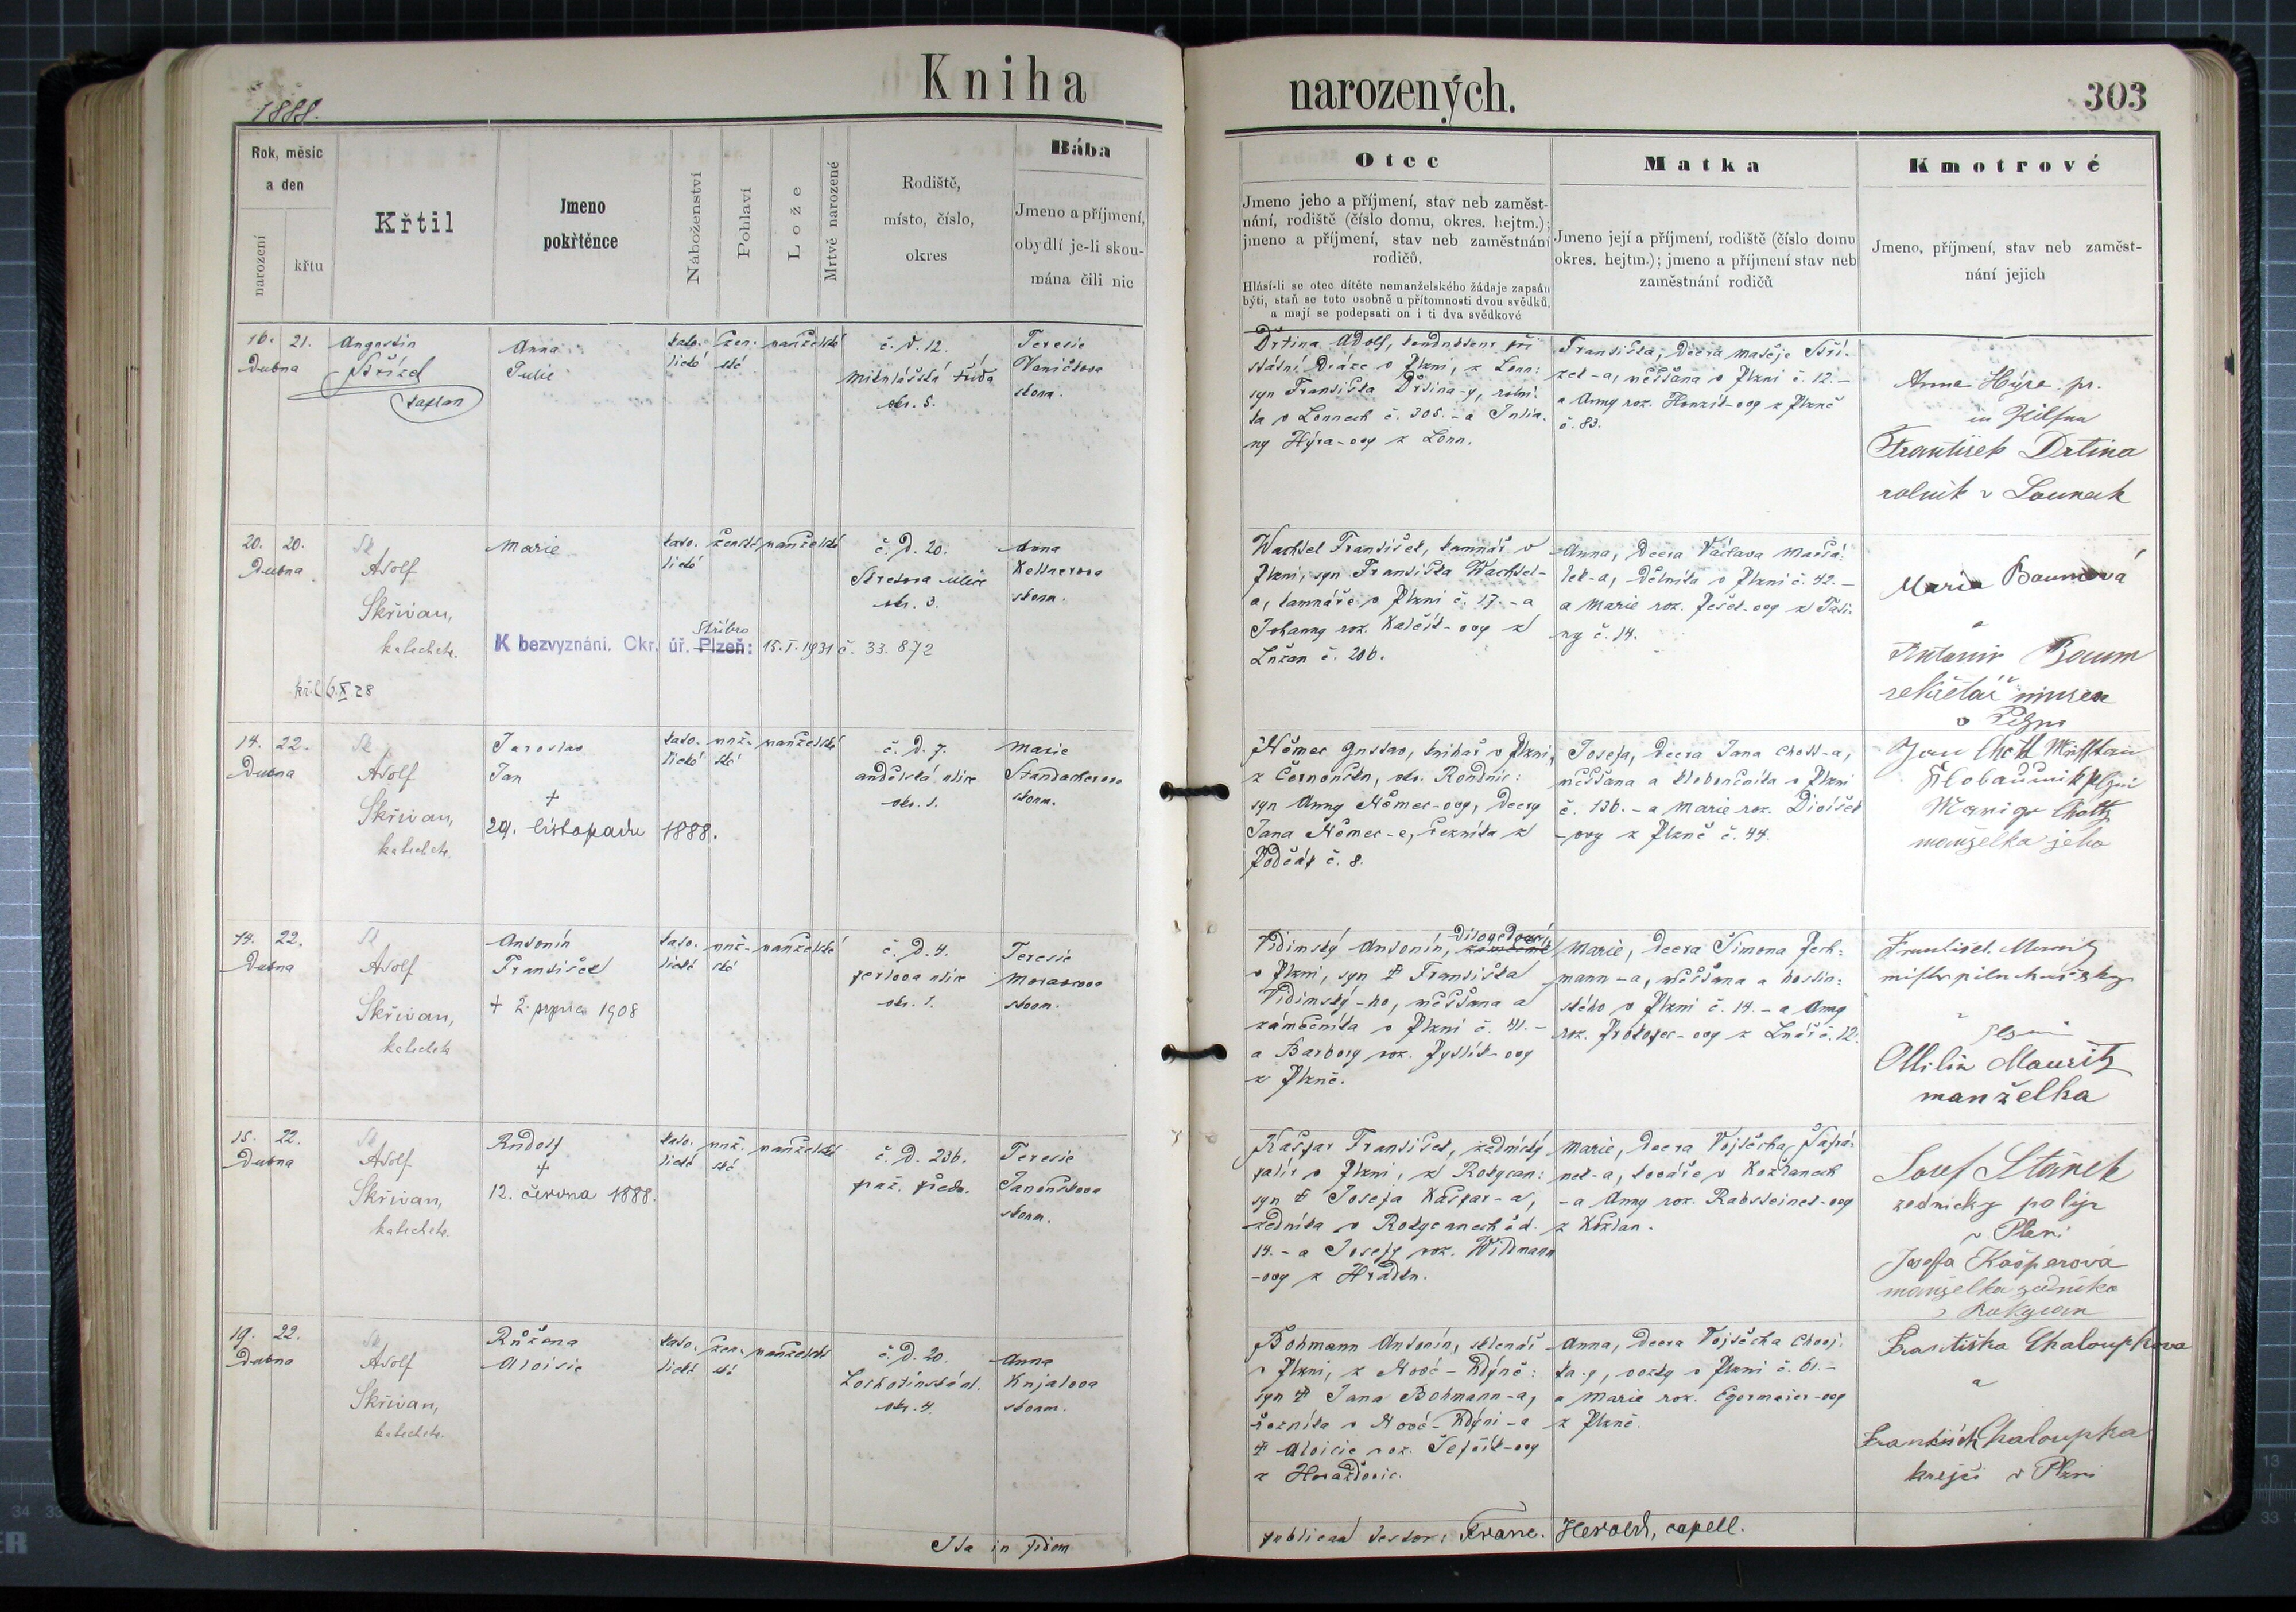 Kniha
narozených.
303
1888.
Rok, měsíc
a den
narození
křtu
Křtil
Jmeno
pokřtěnce
Náboženství
Pohlaví
Lože
Mrtvě narozené
Rodiště,
místo, číslo,
okres
Bába
Jmeno a příjmení,
obydlí je-li skou-
mána čili nic
Otec
Jmeno jeho a příjmení, stav neb zaměst-
nání, rodiště (číslo domu, okres. hejtm.);
jmeno a příjmení, stav neb zaměstnání
rodičů.
Hlásí-li se otec dítěte nemanželského žádaje zapsán
býti, staň se toto osobně u přítomnosti dvou svědků,
a mají se podepsati on i ti dva svědkové
Matka
Jmeno její a příjmení, rodiště (číslo domu
okres. hejtm.); jmeno a příjmení stav neb
zaměstnání rodičů
Kmotrové
Jmeno, příjmení, stav neb zaměst-
nání jejich
16.
Dubna
21.
Augustin
kaplan
Anna
Julie
kato-
lické
žen-
ské
manželské
č. d. 12.
Mikulášská třída
okr. 5.
Terezie
Vaníčkova
zkoum.
Drtina Adolf, konduktent při
státní dráze v Plzni, z Loun:
syn Františka Drtina-y, rolní-
ka v Lounech č. 305. - a Julia-
ny Hýra-ovy z Loun.
Františka, dcera Matěje Stří-
zek-a, měšťana v Plzni č. 12. -
a Anny roz. Houzík-ovy z Plzně
č. 83.
Anna Hýra pr.
in Pilsen
František Drtina
rolník v Lounech
20.
Dubna
20.
Adolf
Skřivan,
katecheta.
Marie
kato-
lické
ženské
manželské
č. d. 20.
ulice
okr. 3.
Anna
Kellnerova
zkoum.
K bezvyznání. Okr. úř. Plzeň: Stříbro 15. I. 1931 č. 33.872
6. X 28
Wachtel František, kamnář v
Plzni, syn Františka Wachtel-
a, kamnáře v Plzni č. 17. - a
Johanny roz. Kalčík-ovy z
Lužan č. 206.
Anna, dcera Václava Maršá-
lek-a, dělníka v Plzni č. 42. -
a Marie roz. Pešek-ovy z
č. 14.
Marie Baumová
a
Antonín Baum
sekretář musea
v Plzni
14.
Dubna
22.
Adolf
Skřivan,
katecheta.
Jaroslav
Jan
+
29. listopadu 1888.
kato-
lické
muž-
ské
manželské
č. d. 7.
andělská ulice
okr. 1.
Marie
Standackerova
zkoum.
Němec Gustav, knihař v Plzni,
z Černoučku, okr. Roudnic:
syn Anny Němec-ovy, dcery
Jana Němec-e, řezníka z
č. 8.
Josefa, dcera Jana Chott-a,
měšťana a kloboučníka v Plzni
č. 136. - a Marie roz. Divíšek
-ovy z Plzně č. 44.
Jan Chott Měšťan
Kloboučník Plzni
Chott
manželka jeho
14.
Dubna
22.
Adolf
Skřivan,
katecheta
Antonín
František
+ 2. srpna 1908
kato-
lické
muž-
ské
manželské
č. d. 4.
perlova ulice
okr. 1.
Terezie
Moravcova
zkoum.
Vidimský Antonín,
v Plzni, syn † Františka
Vidimský-ho, měšťana a
zámečníka v Plzni č. 41. -
a Barbory roz. Pytlík-ovy
z Plzně.
Marie, dcera Šimona Pech-
mann-a, měšťana a hostin-
ského v Plzni č. 14. - a Anny
roz. Prokopec-ovy z Lnář č. 12.
František Mauritz
Plzni
Ottilie Mauritz
manželka
15.
Dubna
22.
Adolf
Skřivan,
katecheta.
Rudolf
+
12. června 1888.
kato-
lické
muž-
ské
manželské
č. d. 236.
praž. předm.
Terezie
Janouškova
zkoum.
Kašpar František, zednický
palír v Plzni, z Rokycan:
syn † Josefa Kašpar-a,
zedníka v Rokycanech čd.
14. - a Josefy roz. Widmann
-ovy z Hrádku.
Marie, dcera Vojtěcha Šafrá-
nek-a, kováře v Kožlanech
- a Anny roz. Rabsteinek-ovy
z Kožlan.
Josef Stánek
zednický polír
v Plzni
Josefa Kašperová
manželka zedníka
z Rokycan
19.
Dubna
22.
Adolf
Skřivan,
katecheta.
Růžena
Aloisie
kato-
lické
žen-
ské
manželské
č. d. 20.
Lochotínská ul.
okr. 4.
Anna
Knjalova
zkoum.
Bohmann Antonín, sklenář
v Plzni, z Nové-Kdýně:
syn † Jana Bohmann-a,
řezníka v Nové-Kdýni - a
† Aloisie roz. Šepčík-ovy
z Horažďovic.
Anna, dcera Vojtěcha Chval-
ka-y, vozky v Plzni č. 61. -
a Marie roz. Egermaier-ovy
z Plzně.
Františka Chaloupkova
a
František Chaloupka
krejčí v Plzni
Ita in fidem
publicam testor: Franc. Herold, capell.